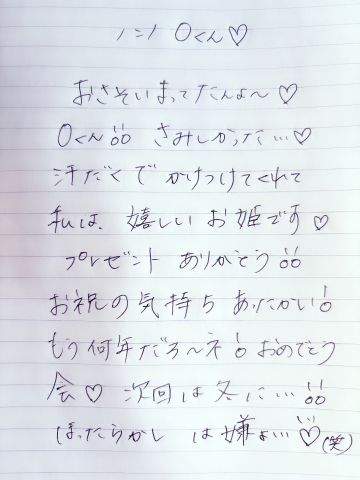 Oくん♡
おさそいまってたんよ〜♡
Oくん!! さみしかった…♡
汗だくで かけつけてくれて
私は、嬉しい お姫です♡
プレゼント ありがとう!!
お祝の気持ち あたたかい!
もう何年だろ〜ネ! おめでとう
会♡ 次回は冬に…!!
ほったらかし は嫌よ…♡(笑)